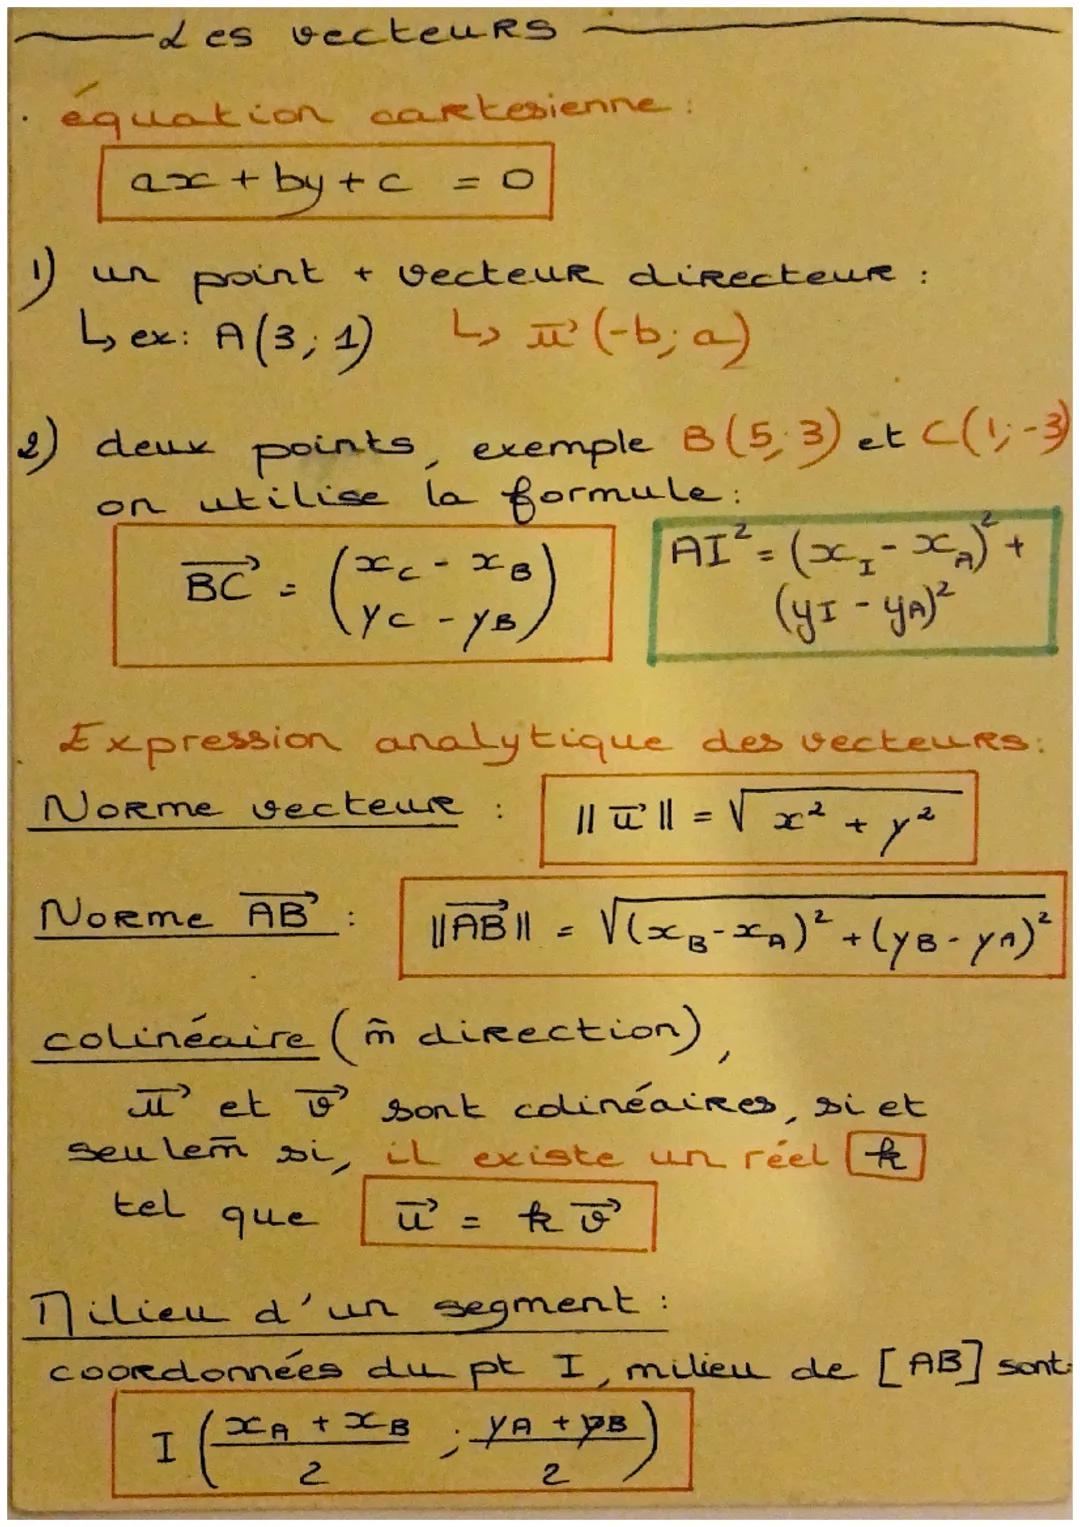 Les vecteurs
• équation cartesienne :
ax + by + c = 0
1) un point + vecteur directeur :
↳ ex: A(3; 1) ↳ u⃗ (-b; a)
2) deux points, exemple B(5; 3) et C(1; -3)
on utilise la formule :
BC⃗ = (xC - xB
yC - yB)
AI² = (xI - xA)² +
(yI - yA)²
Expression analytique des vecteurs :
Norme vecteur : ||u⃗|| = √x² + y²
Norme AB⃗ : ||AB⃗|| = √(xB - xA)² + (yB - yA)²
colinéaire (m̃ direction),
u⃗ et v⃗ sont colinéaires, si et
seulem̃ si, il existe un réel k
tel que u⃗ = k v⃗
Milieu d'un segment :
coordonnées du pt I, milieu de [AB] sont:
I (xA + xB / 2 ; yA + yB / 2)